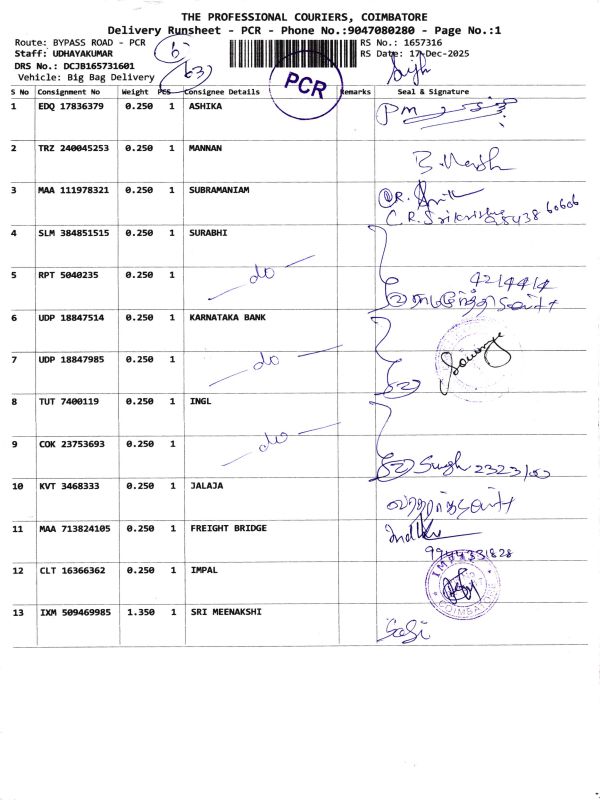 THE PROFESSIONAL COURIERS, COIMBATORE
Delivery Runsheet - PCR - Phone No.:9047080280 - Page No.:1
Route: BYPASS ROAD - PCR
RS No.: 1657316
Staff: UDHAYAKUMAR
RS Date: 17-Dec-2025
DRS No.: DCJB165731601
Vehicle: Big Bag Delivery
63
PCR
S No Consignment No Weight PCS Consignee Details Remarks Seal & Signature
1 EDQ 17836379 0.250 1 ASHIKA
2 TRZ 240045253 0.250 1 MANNAN
3 MAA 111978321 0.250 1 SUBRAMANIAM
4 SLM 384851515 0.250 1 SURABHI
5 RPT 5040235 0.250 1 do 4214414
6 UDP 18847514 0.250 1 KARNATAKA BANK
7 UDP 18847985 0.250 1 do
8 TUT 7400119 0.250 1 INGL
9 COK 23753693 0.250 1 do
10 KVT 3468333 0.250 1 JALAJA
11 MAA 713824105 0.250 1 FREIGHT BRIDGE
9944331828
12 CLT 16366362 0.250 1 IMPAL
COIMBATORE
13 IXM 509469985 1.350 1 SRI MEENAKSHI